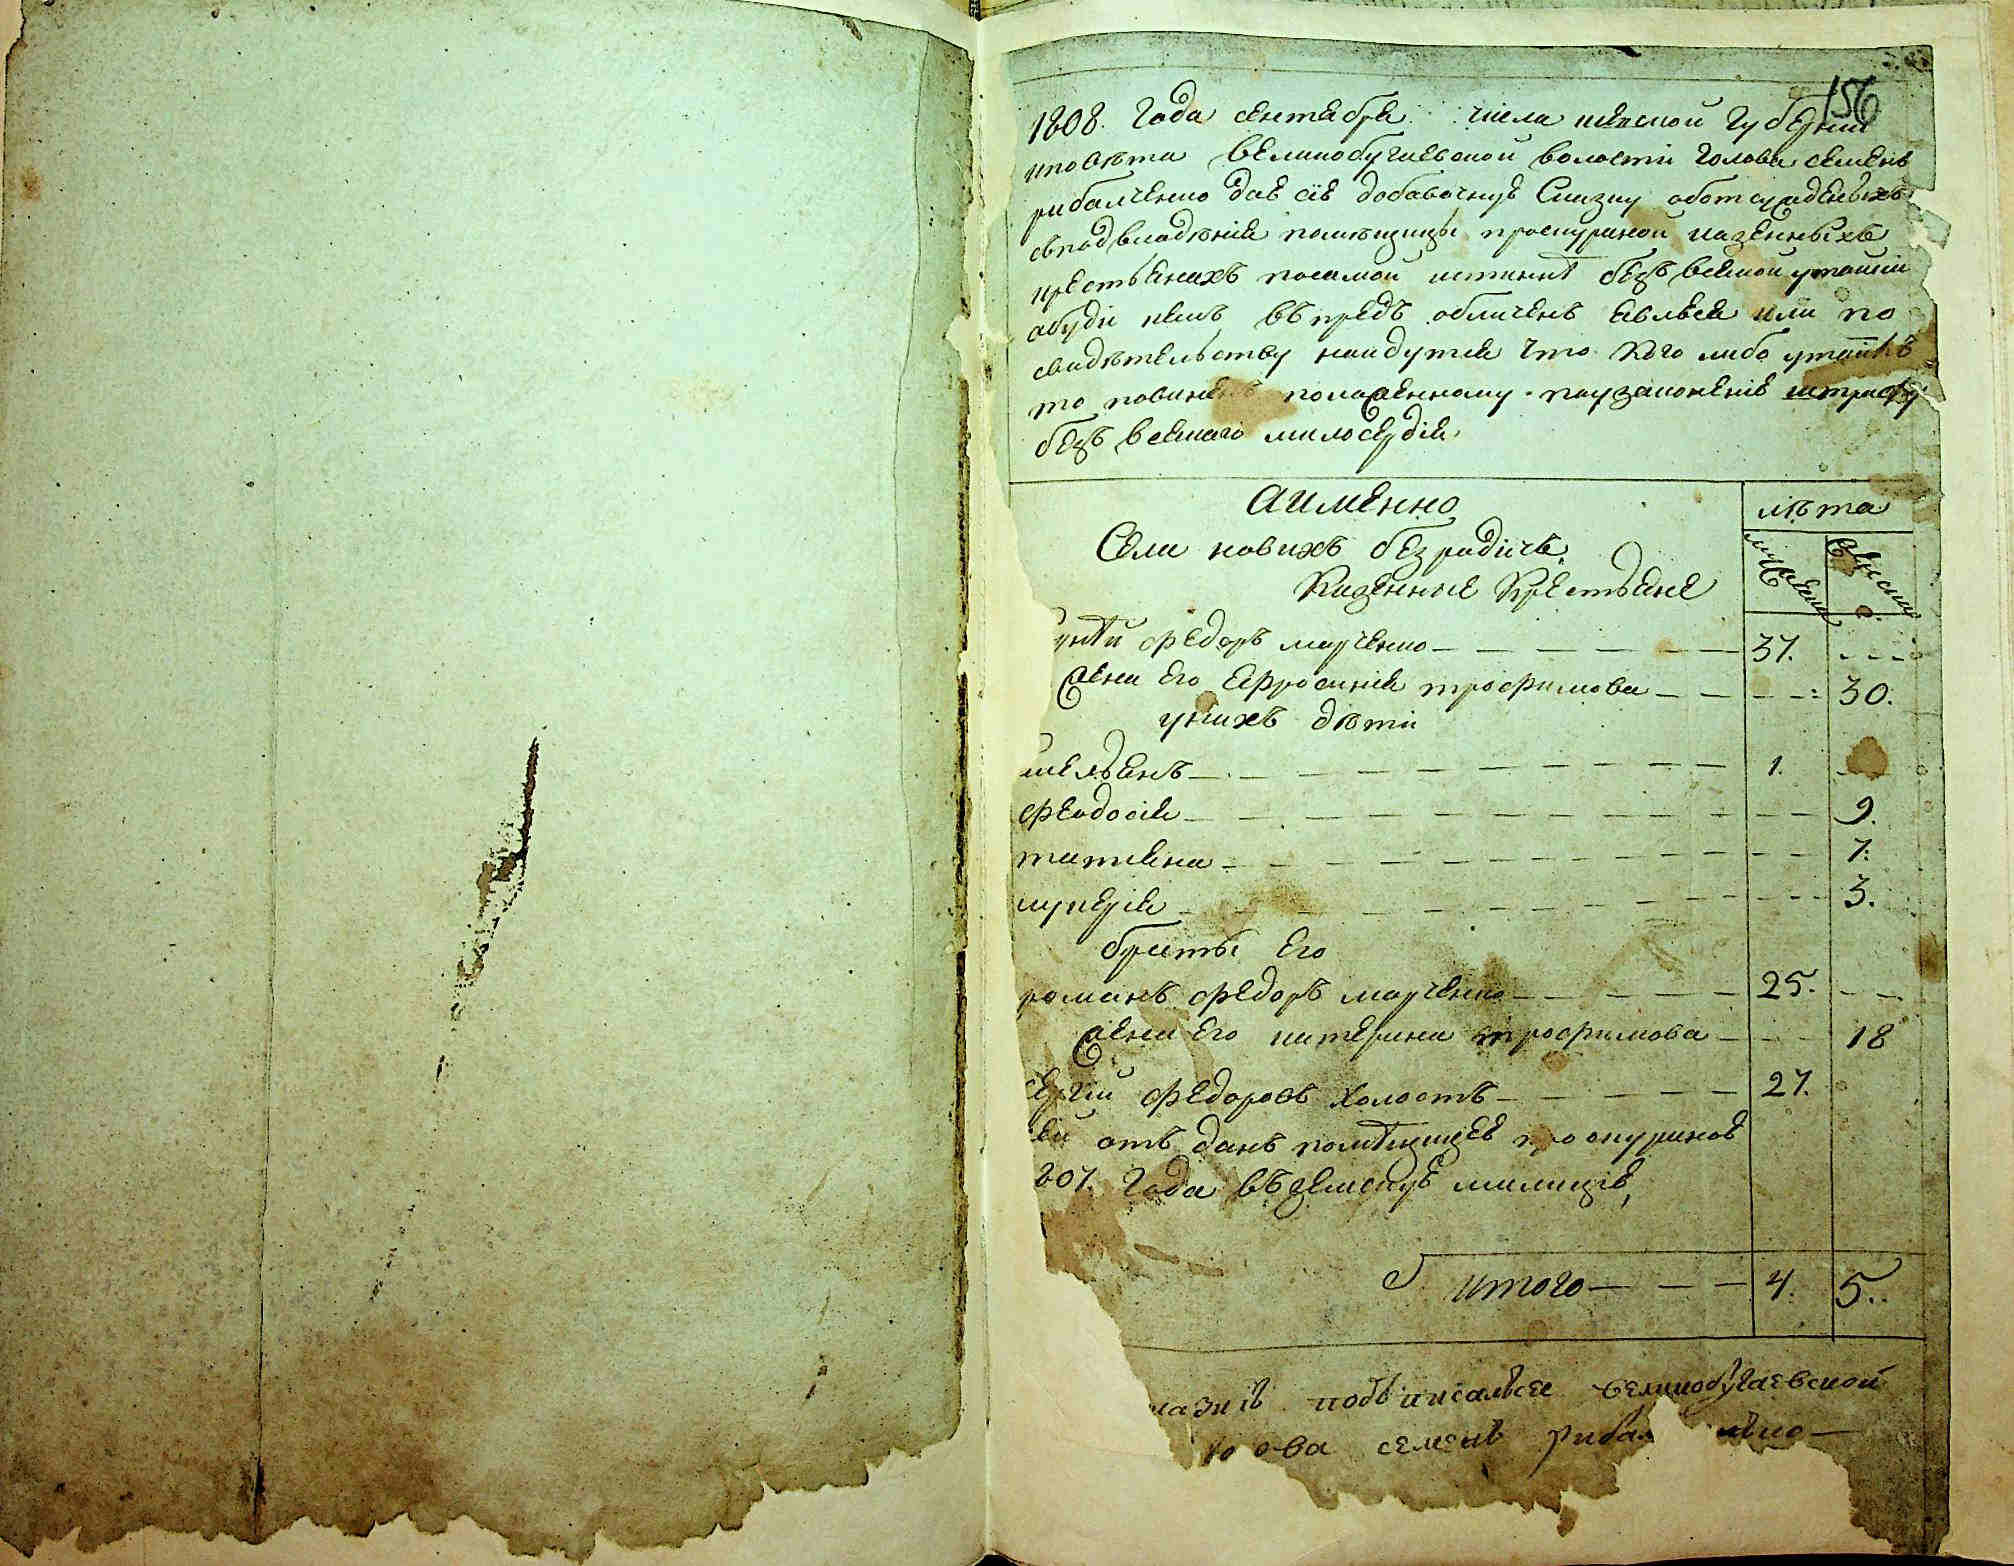 156
1808. Года сентября числа киевской губернии
и повѣта великобугаевской волости голова семенъ
рибалченко дав сіе добавочную Сказку об отсужденыхъ
съ под владѣнія помѣщицы проскуриной казенныхъ
крестьянахъ по самой истиннѣ безъ всякой утайки
а буди кемъ въ предъ обличенъ явлься или по
свидѣтельству найдутся что кого либо утаилъ
то повиненъ положенному по узаконенію штрафу
безъ всякаго милосердія.
А именно
лѣта
Села новихъ безрадичъ
Казенные Крестьяне
мужеска
женска
федоръ марченко 37.
жена его Ефросинія трофимова 30.
у нихъ дѣти
емельянъ 1.
феодосія 9.
татияна 7.
лукерія 3.
братья Его
романъ федоръ марченко 25.
жена Его катерина трофимова 18
сергій федоровъ холостъ 27.
сей отъ данъ помѣщицею проскуриною
807. года въ земскую милицію,
итого 4. 5.
подъписалься великобугаевской
семенъ